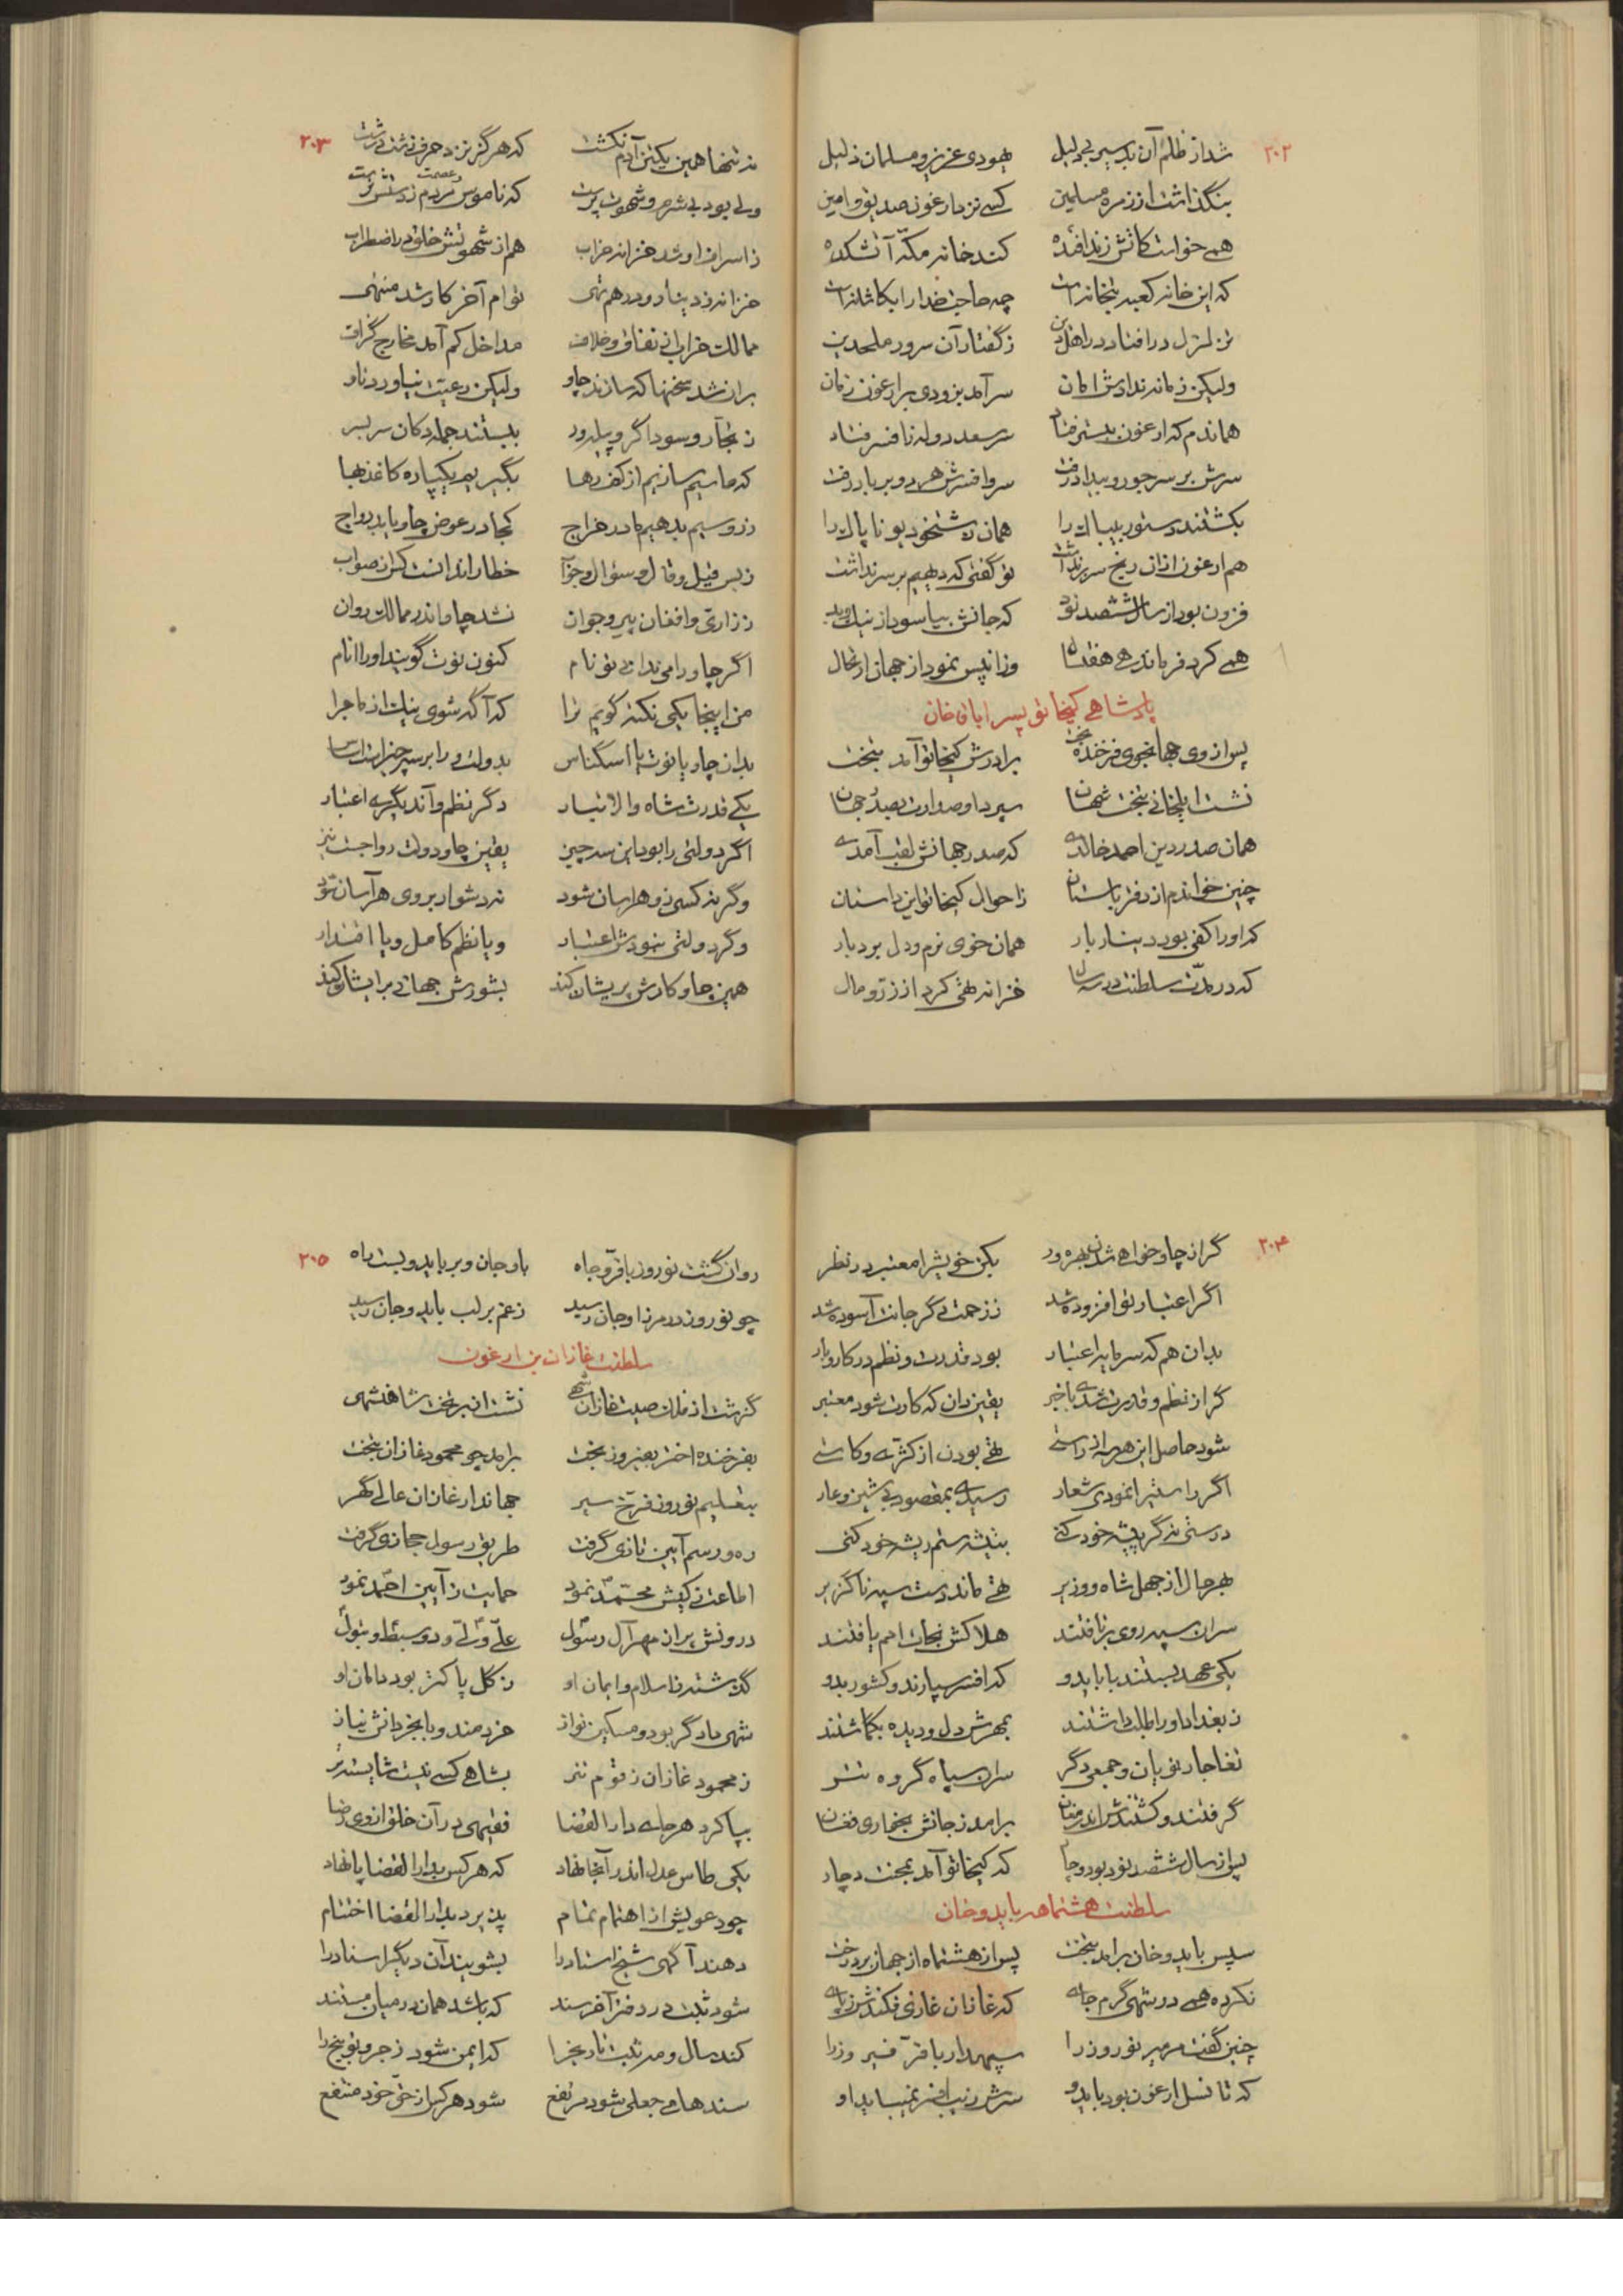 ۲۰۲
شد از ظلم آن بد سیر بی دلیل یهودی عزیز و مسلمان ذلیل
بنگذاشت از زمره مسلمین کسی نزد ارغون صدیق و امین
همی خواست کاتش زند افکده کند خانه مکه آتشکده
که این خانه کعبه بتخانه است چه حاجت خدا را بکاشانه است
تزلزل در افتاد در اهل دین ز گفتار آن سرور ملحدین
ولیکن زمانه ندادش امان سر آمد بزودی بر ارغون زمان
هماندم که ارغون به بستر فتاد سر سعد دوله ز افسر فتاد
سرش بر سر جور و بیداد رفت سر و افسرش هر دو بر باد رفت
بکشتند دستور بیباک را همان زشتخو دیو ناپاک را
هم ارغون از آن رنج سر بر نداشت تو گفتی که دیهیم بر سر نداشت
فزون بود از سال ششصد نود که جانش بیاسود از نیک و بد
همی کرد فرماندهی هفت سال وز آنپس نمود از جهان ارتحال
پادشاهی کیخاتو پسر اباقا خان
پس از وی جهانجوی فرخنده بخت برادرش کیخاتو آمد بتخت
نشست ایلخانی بتخت شهان سپرد او صدارت بصدر جهان
همان صدر دین احمد خالدی که صدر جهانش لقب آمدی
چنین خواندم از دفتر باستان ز احوال کیخاتو این داستان
که او را کفی بود دینار بار همان خوی نرم و دل بردبار
که در مدت سلطنت در سه سال خزانه تهی کرد از زر و مال
۲۰۳
نه تنها همین یکتن آدم نکشت که هرگز نزد حرف زشت و درشت
ولی بود بی شرم و شهوت پرست که ناموس و عصمت مردم ز دستش نرست
ز اسراف او شد خزانه خراب هم از شهوتش خلق در اضطراب
خزانه ز دینار و درهم تهی توام آخر کار شد منتهی
ممالک خراب از نفاق و خلاف مداخل کم آمد مخارج گزاف
بر آن شد سخنها که سازند چاو ولیکن رعیت نیاورد تاو
ز تجار و سوداگر و پیله ور ببستند جمله دکان سر بسر
که ما سیم سازیم از کف رها بگیریم یکپاره کاغذ بها
زر و سیم بدهیم ما در خراج کجا در عوض چاو یابد رواج
ز بس قیل و قال و سؤال و جواب خطا را ندانست کس از صواب
ز زاری و افغان پیر و جوان نشد چاو اندر ممالک روان
اگر چاو را می ندانی تو نام کنون نوت گویند او را انام
من اینجا یکی نکته گویم ترا که آگه شوی نیک از ماجرا
بدان چاو یا نوت یا اسکناس بدولت ورا بر سه چیز است اساس
یکی قدرت شاه والا تبار دگر نظم و آند یگری اعتبار
اگر دولتی را بود این سه چیز یقین چاو دولت رواجست نیز
وگرنه کسی زو هراسان شود نه دشوار بر وی هر آسان شود
وگر دولتی نبودش اعتبار و یا نظم کامل و یا اقتدار
همین چاو کارش پریشان کند بشورش جهانی بر ایشان کند
۲۰۴
گر از چاو خواهی شدن بهره ور بکن خویش را معتبر در نظر
اگر اعتبار تو افزوده شد ز زحمت دگر جانت آسوده شد
بدان هم که سرمایه اعتبار بود قدرت و نظم در کار و بار
گر از نظم و قدرت شدی با خبر یقین دان که کارت شود معتبر
شود حاصل این هر سه از راستی تهی بودن از کژی و کاستی
اگر راستی را نمودی شعار رسیدی بمقصود بی شین و عار
درستی نه گر پیشه خود کنی بتیشه ستم ریشه خود کنی
بهر حال از جهل شاه و وزیر تهی ماند دست سپه ناگزیر
سران سپه روی بر تافتند هلاکش نجات امم یافتند
یکی عهد بستند با بایدو که افسر سپارند و کشور بدو
ز بغداد او را طلب داشتند بمهرش دل و دیده بگماشتند
تغاجار نویان و جمعی دگر سران سپاه گروه تتر
گرفتند و کشتندش اندر مغان برآمد ز جانش بخواری فغان
پس از سال ششصد نود بود و چار که کیخاتو آمد بمحنت دچار
سلطنت هشتماهه بایدو خان
سپس بایدو خان برآمد بتخت پس از هشتماه از جهان برد رخت
نکرده همی در شهی گرم جای که غازان غازی فکندش ز پای
چنین گفت مر میر نوروز را سپهدار با فر فیروز را
که تا نسل ارغون بود بایدو سرش زیب افسر نمیباید او
۲۰۵
روان گشت نوروز با فر و جاه باوجان و بر بایدو بست راه
چو نوروز در مرز اوجان رسید ز غم بر لب بایدو جان رسید
سلطنت غازان بن ارغون
گذشت از فلک صیت غازان شهی نشست از بر تخت شاهنشهی
بفرخنده اختر بفیروز بخت برآمد چو محمود غازان بتخت
بتعلیم نوروز فرخ سیر جهاندار غازان عالی گهر
ره و رسم آیین تازی گرفت طریق رسول حجازی گرفت
اطاعت ز کیش محمد نمود حمایت ز آیین احمد نمود
درونش پر از مهر آل رسول علی ولی و دو سبط و بتول
گذشته ز اسلام و ایمان او ز گل پاکتر بود دامان او
شهی دادگر بود و مسکین نواز خردمند و با بخردانش نیاز
ز محمود غازان ز قوم تتر بشاهی کسی نیست شایسته تر
بپا کرد هر جای دار القضا فقیهی در آن خلق از وی رضا
یکی طاس عدل اندر آنجا نهاد که هر کس بدار القضا پا نهاد
چو دعویش از اهتمام تمام پذیرد بدار القضا اختتام
دهند آگهی شیخ استاد را بشویند آن دیگر اسناد را
شود ثبت در دفتر آخر سند که باشد همان در میان مستند
کند سال و مه ثبت تاریخ را که ایمن شود زجر و توبیخ را
سندهای جعلی شود مرتفع شود هر کس از حق خود منتفع